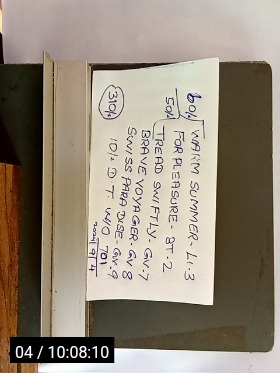 60% WARM SUMMER - LI.3
50% FOR PLEASURE - BT-2
TREAD SWIFTLY - GV.7
BRAVE VOYAGER - GV.8
SWISS PARADISE - GV.9
10% D.T. W/O 701
310%
2024/9/4
04 / 10:08:10